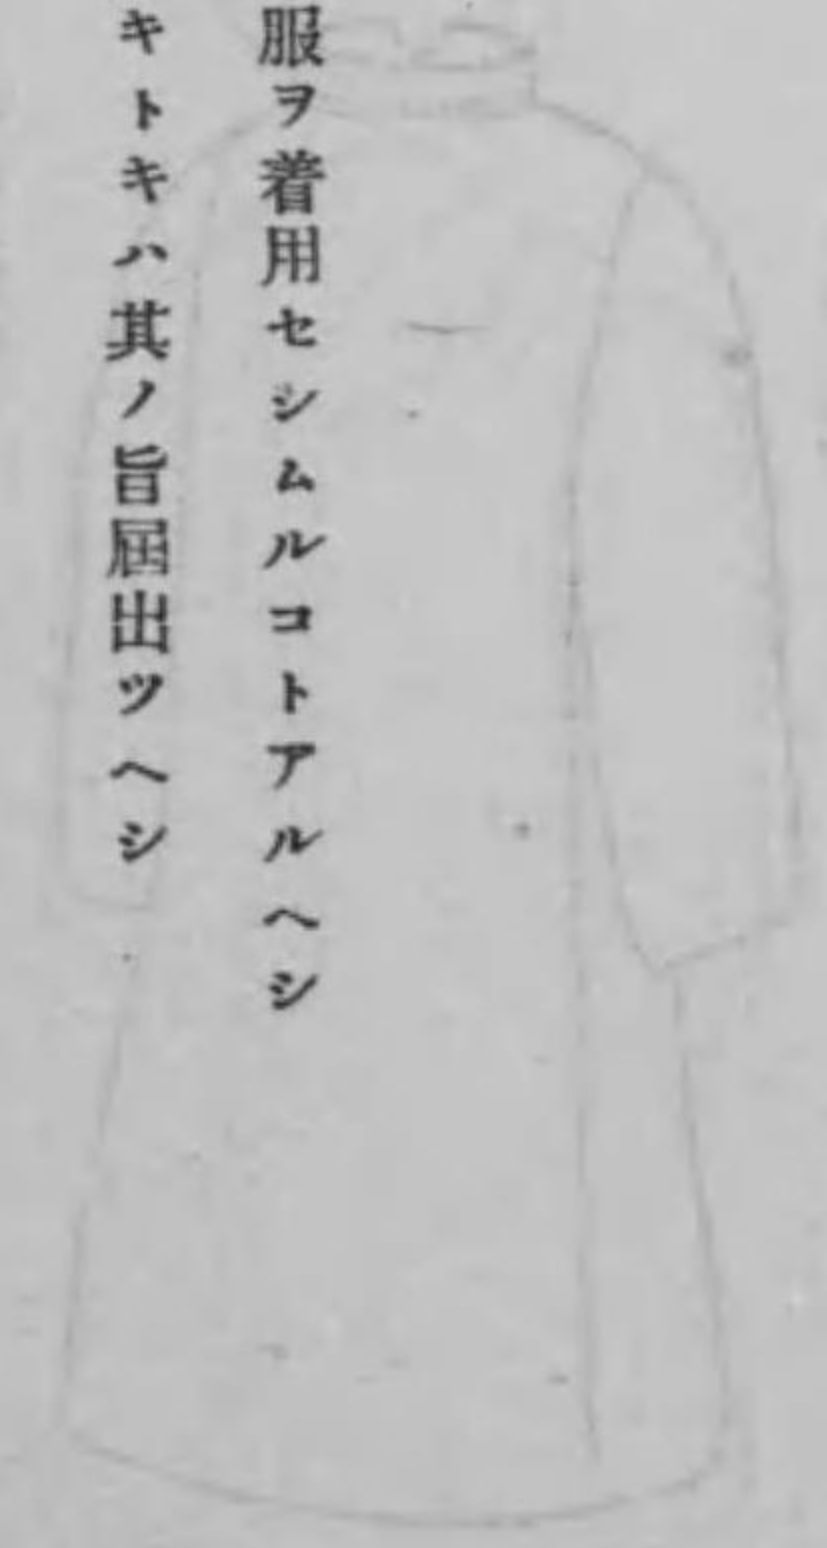 服ヲ着用セシムルコトアルヘシ
キトキハ其ノ旨屆出ツヘシ